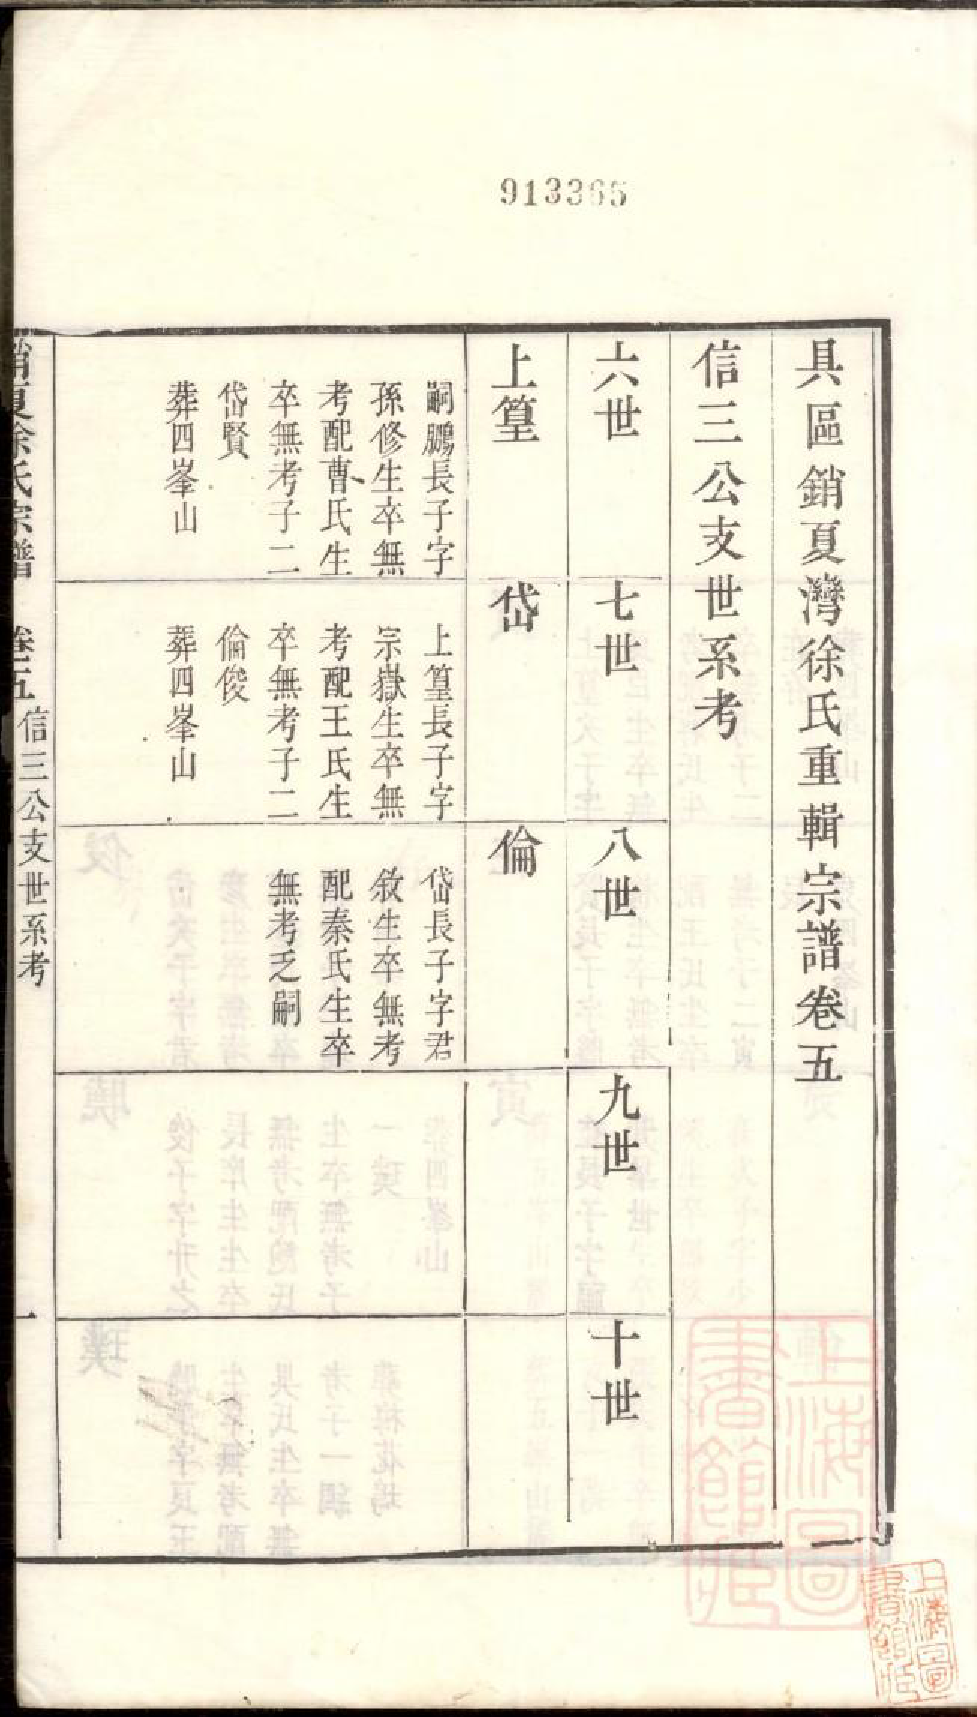 913365
具區銷夏灣徐氏重輯宗譜卷五
信三公支世系考
六世
七世
八世
九世
十世
上篁
嗣鵬長子字
孫修生卒無
考配曹氏生
卒無考子二
岱賢
葬四峯山
岱
上篁長子字
宗嶽生卒無
考配王氏生
卒無考子二
倫俊
葬四峯山
倫
岱長子字君
敘生卒無考
配秦氏生卒
無考乏嗣
銷夏徐氏宗譜
卷五
信三公支世系考
一
上海圖書館藏
上海圖書館藏